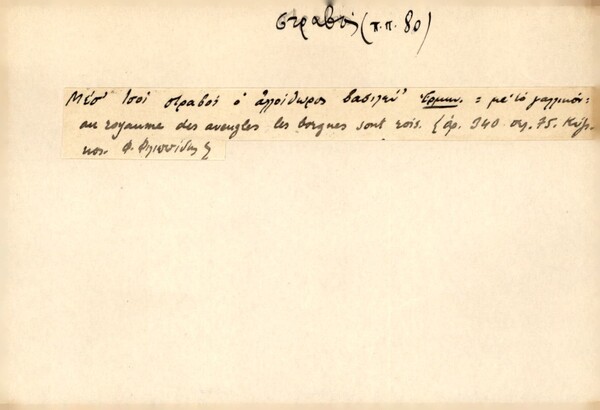 στραβοί (π.π. 80)
Μέσ' τσοί στραβοί ὁ ἀλλοίθωρος βασιλεύ' Ἑρμην. = με τό γαλλικόν:
au royaume des aveugles les borgnes sont rois. {ἀρ. 940 σελ. 75. Κύζι-
κος. Φ. Φιλιππίδης